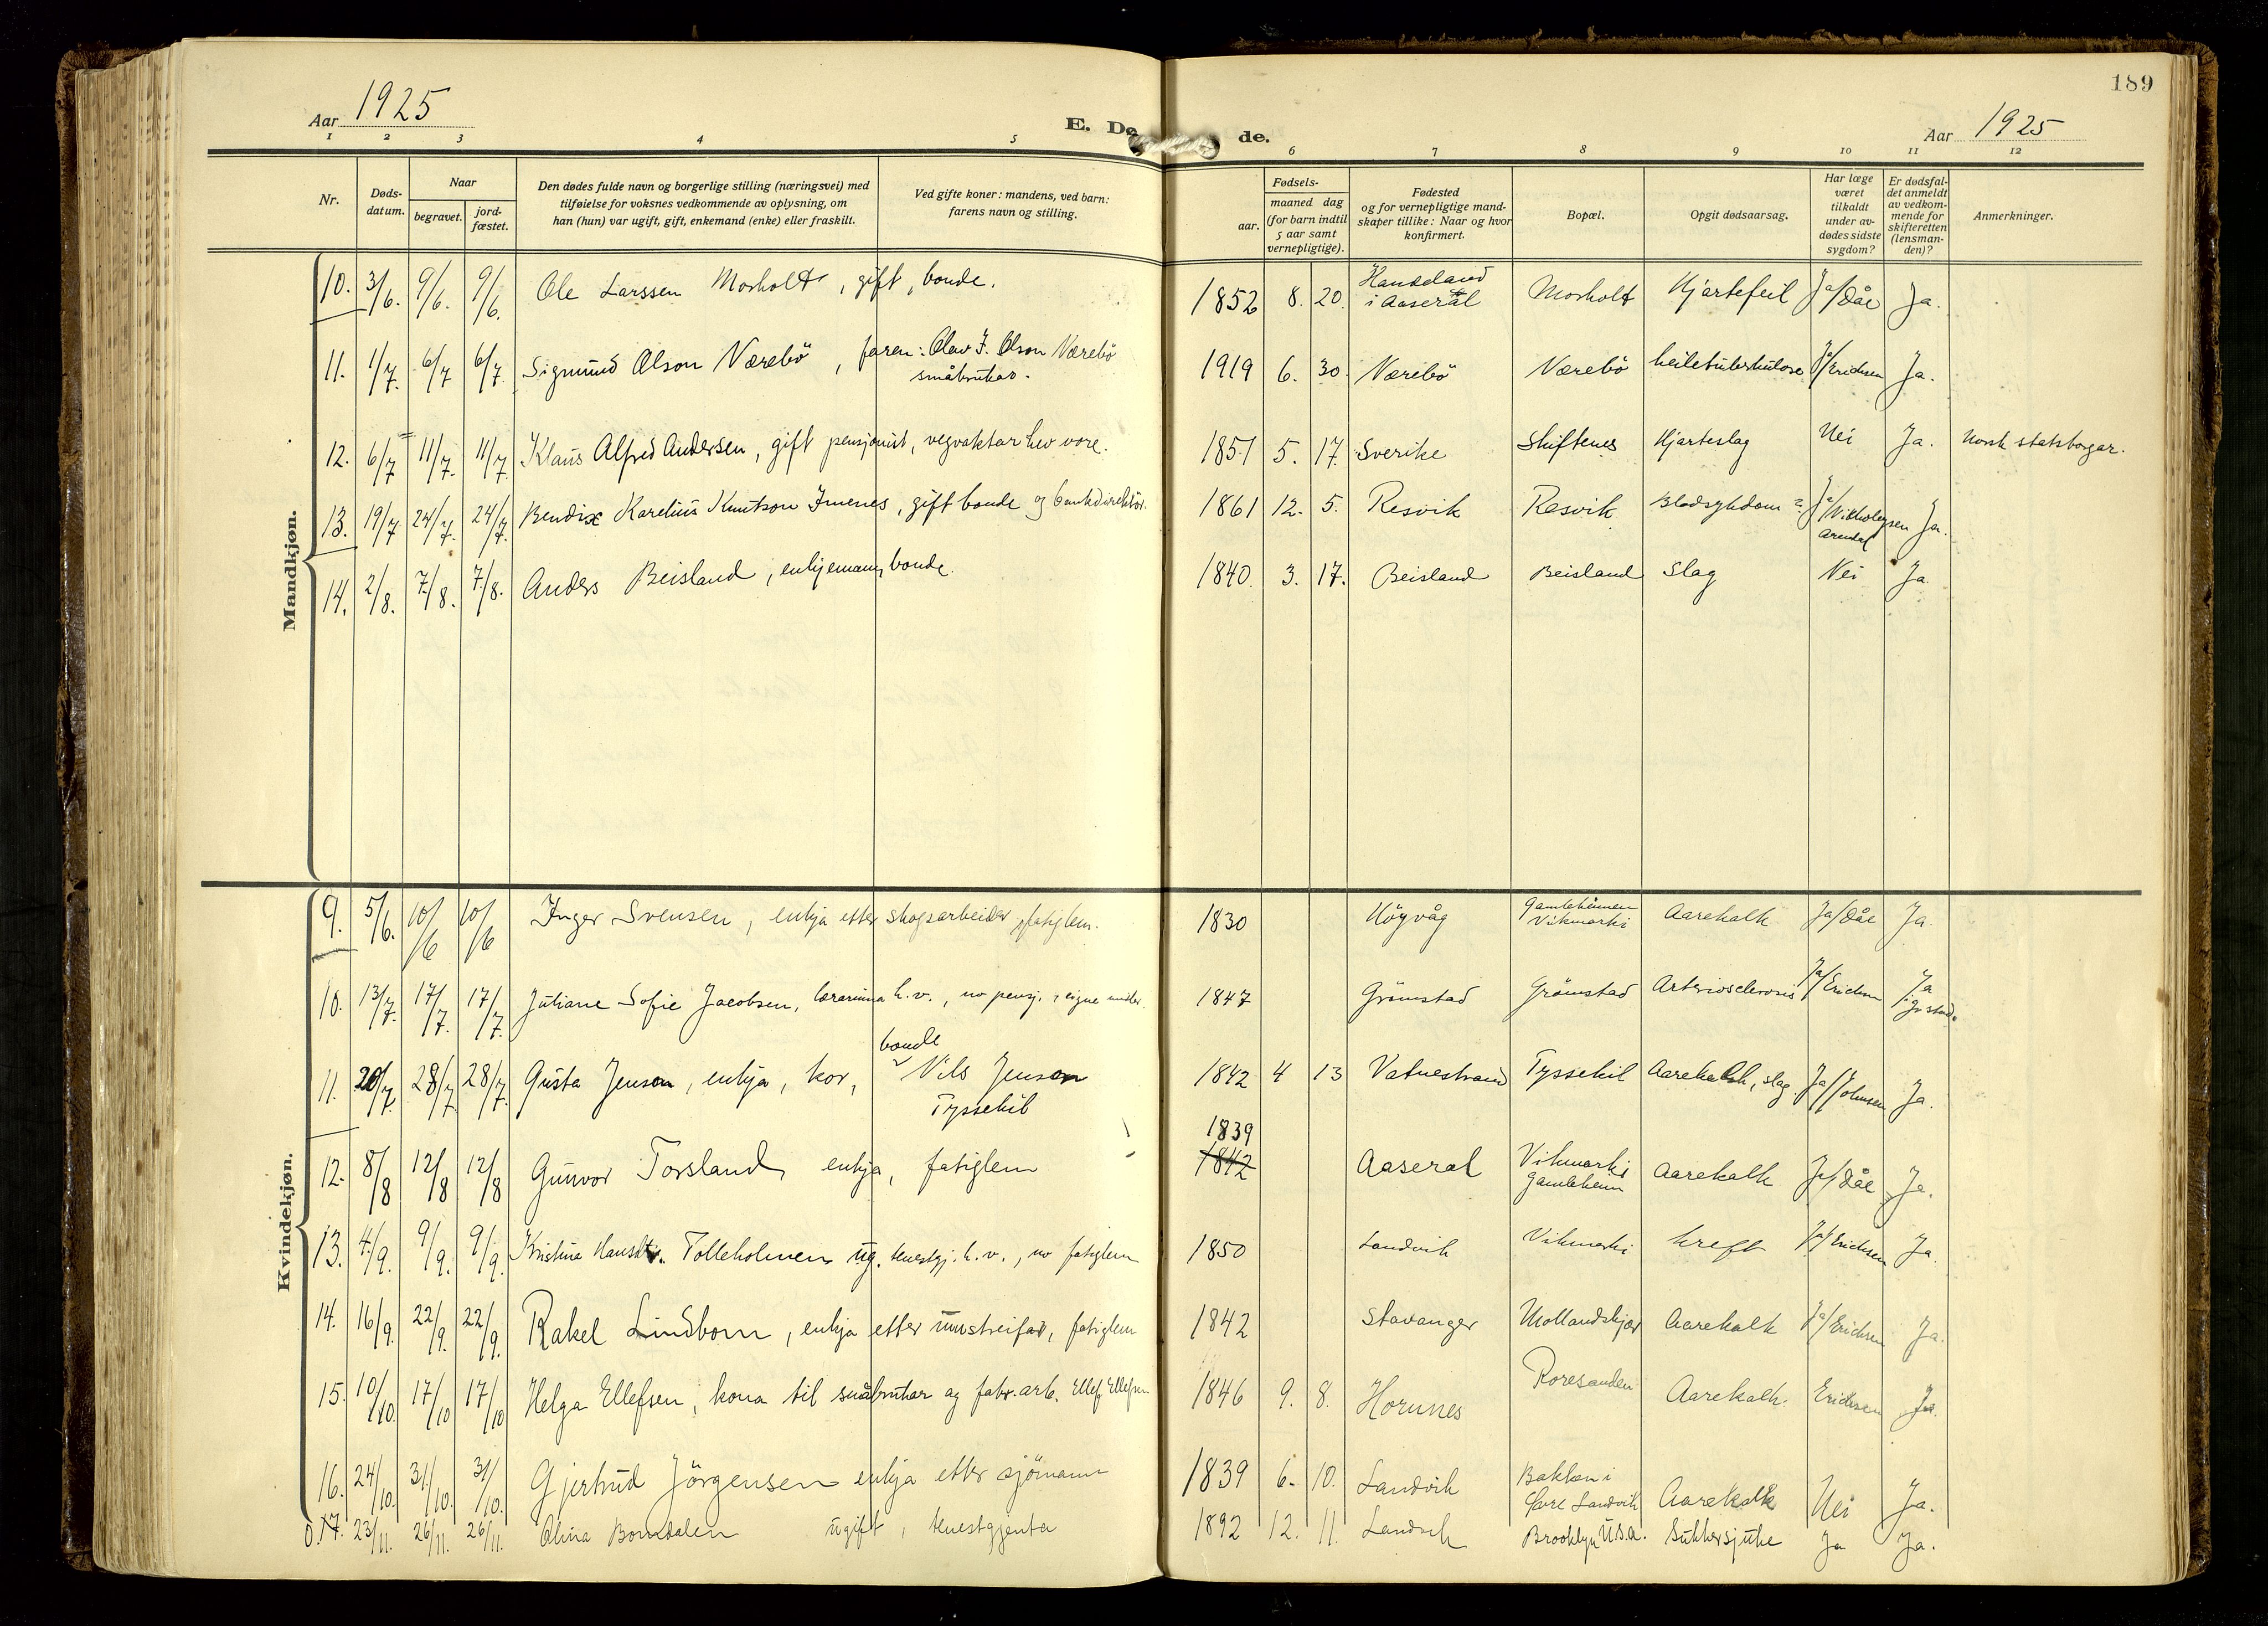 189
Aar 1925
E. Dø de.
Aar 1925
1 2 3 4 5 6 7 8 9 10 11 12
Nr.
Døds-
datum.
Naar
begravet.
jord-
fæstet.
Den dødes fulde navn og borgerlige stilling (næringsvei) med
tilføielse for voksnes vedkommende av oplysning, om
han (hun) var ugift, gift, enkemand (enke) eller fraskilt.
Ved gifte koner: mandens, ved barn:
farens navn og stilling.
Fødsels-
aar.
maaned dag
(for barn indtil
5 aar samt
vernepligtige).
Fødested
og for vernepligtige mand-
skaper tillike: Naar og hvor
konfirmert.
Bopæl.
Opgit dødsaarsag.
Har læge
været
tilkaldt
under av-
dødes sidste
sygdom?
Er dødsfal-
det anmeldt
av vedkom-
mende for
skifteretten
(lensman-
den)?
Anmerkninger.
Mandkjøn.
10. 3/6. 9/6. 9/6. Ole Larssen Morholt, gift, bonde. 1852 8. 20. i Aaseral Morholt Hjartefeil Ja/Dåe Ja.
11. 1/7. 6/7 6/7. Sigmund Olson Værebö, faren: Olav J. Olson Værebö 1919 6. 30. Værebö Værebö heiletuberkulose Ja/Erichsen Ja.
småbrukar.
12. 6/7 11/7. 11/7. Klaus Alfred Andersen, gift pensjonist, vegvaktar hev vore. 1851 5. 17. Sverike Skiftenes Hjarteslag Nei Ja. Norsk statsborgar.
13. 19/7 24/7. 24/7. Bendix Karelius Knutson Imenes, gift bonde og bankdirektör. 1861 12. 5. Resvik Resvik Blodsykdom? Ja/ Ja.
Arendal
14. 2/8. 7/8. 7/8. Anders Beisland, enkjemann, bonde. 1840. 3. 17. Beisland Beisland Slag Nei Ja.
Kvindekjøn.
9. 5/6. 10/6 10/6 Inger Svensen, enkja etter skogsarbeider, fatiglem. 1830 Högvåg Gamleheimen Aarekalk Ja/Dåe Ja.
Vikmarki
10. 13/7. 17/7. 17/7. Juliane Sofie Jacobsen, lærarinna h.v., no pensj. 1847 Grömstad Grömstad Arteriosclerosis Ja/Erichsen Ja
bonde
11. 20/7. 28/7. 28/7. Gusta Jenson, enkja, kor, Nils Jenson 1842 4 13 Vatnestrand Tyssekil Aarekalk, slag. Ja/Johnsen Ja.
Tyssekil
1839
12. 8/8 12/8 12/8 Gunvor Torsland, enkja, fatiglem 1842 Aaseral Vikmarki Aarekalk Ja/Dåe Ja.
Gamleheim
13. 4/9. 9/9. 9/9. Kristine Tolleholmen ug. tenestgj. h.v., no fatiglem 1850 Landvik Vikmarki kreft Ja/Erichsen Ja
14. 16/9. 22/9. 22/9. Rakel Lindbom, enkja etter umstreifar, fatiglem 1842 Stavanger Mollandskjær Aarekalk Ja/Erichsen Ja.
15. 10/10. 17/10 17/10 Helga Ellefsen, kona til småbrukar og fabr.arb. Ellef Ellefsen 1846 9. 8. Hornnes Roresanden Aarekalk. Erichsen Ja.
16. 24/10. 31/10. 31/10. Gjertrud Jörgensen enkja etter sjömann 1839 6. 10. Landvik Bakken i Aarekalk Nei Ja.
Landvik
0.17. 23/11. 26/11. 26/11. Olina Bomdalen ugift, tenestgjenta 1892 12. 11. Landvik Brooklyn U.S.A. Sukkersjuke Ja Ja.